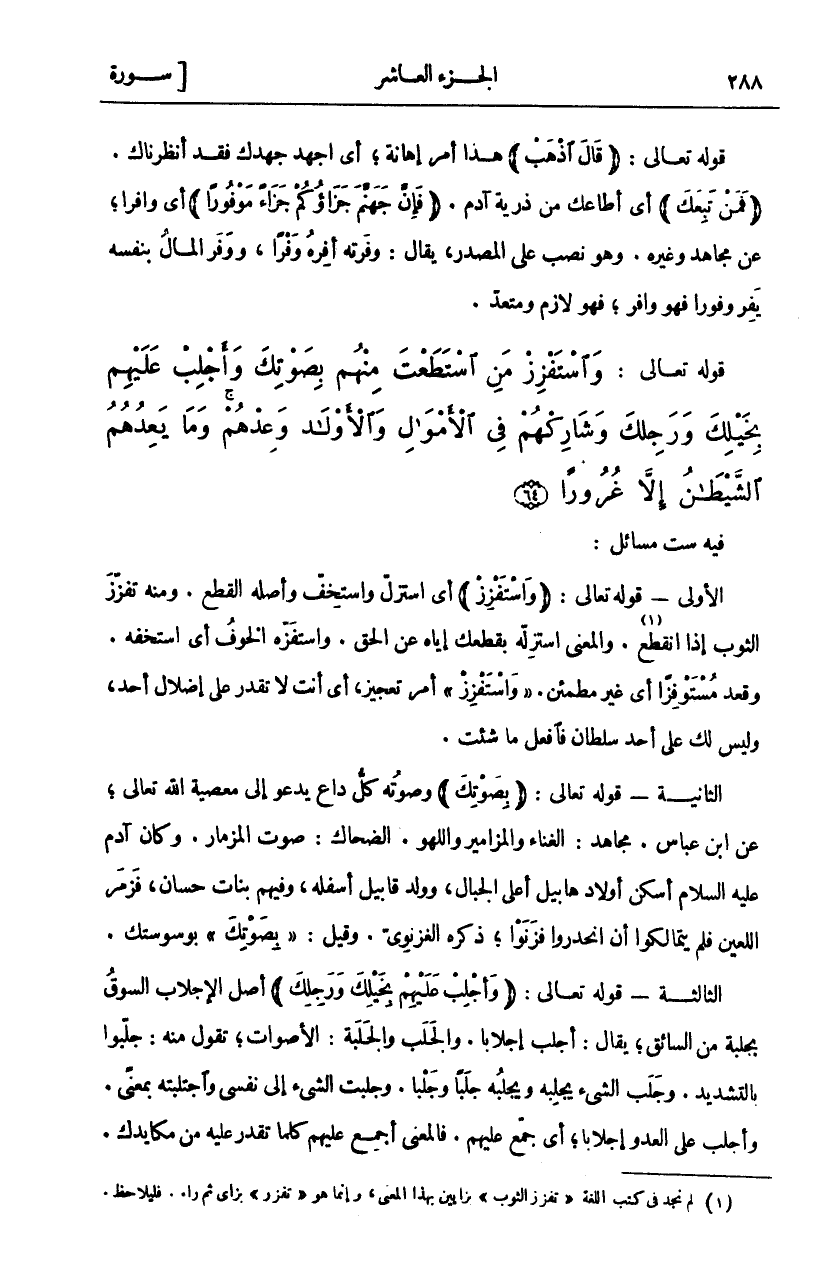 ٢٨٨ الجزء العاشر [ سورة
قوله تعالى : ﴿ قَالَ ٱذْهَبْ ﴾ هذا أمر إهانة ؛ أى اجهد جهدك فقد أنظرناك .
﴿ فَمَنْ تَبِعَكَ ﴾ أى أطاعك من ذرية آدم . ﴿ فَإِنَّ جَهَنَّمَ جَزَاؤُكُمْ جَزَاءً مَوْفُورًا ﴾ أى وافرا ؛
عن مجاهد وغيره . وهو نصب على المصدر، يقال : وفَرته أفِرهُ وَفْرًا ، ووَفَر المالُ بنفسه
يَفِر وفورا فهو وافر ؛ فهو لازم ومتعدّ .
قوله تعالى : وَٱسْتَفْزِزْ مَنِ ٱسْتَطَعْتَ مِنْهُم بِصَوْتِكَ وَأَجْلِبْ عَلَيْهِم
بِخَيْلِكَ وَرَجِلِكَ وَشَارِكْهُمْ فِى ٱلْأَمْوَٰلِ وَٱلْأَوْلَـٰدِ وَعِدْهُمْ ۚ وَمَا يَعِدُهُمُ
ٱلشَّيْطَـٰنُ إِلَّا غُرُورًا ٦٤
فيه ست مسائل :
الأولى — قوله تعالى : ﴿ وَٱسْتَفْزِزْ ﴾ أى استزلّ واستخِفّ وأصله القطع . ومنه تفزّز
الثوب إذا انقطع (١) . والمعنى استزِلّه بقطعك إياه عن الحق . واستفَزّه الخوفُ أى استخفه .
وقعد مُسْتَوْفِزًا أى غير مطمئن. « وَٱسْتَفْزِزْ » أمر تعجيز، أى أنت لا تقدر على إضلال أحد،
وليس لك على أحد سلطان فٱفعل ما شئت .
الثانيـة — قوله تعالى : ﴿ بِصَوْتِكَ ﴾ وصوتُه كلُّ داع يدعو إلى معصية الله تعالى ؛
عن ابن عباس . مجاهد : الغناء والمزامير واللهو . الضحاك : صوت المزمار . وكان آدم
عليه السلام أسكن أولاد هابيل أعلى الجبال، وولد قابيل أسفله، وفيهم بنات حسان، فَزَمَر
اللعين فلم يتمالكوا أن انحدروا فزَنَوْا ؛ ذكره الغزنوىّ . وقيل : « بِصَوْتِكَ » بوسوستك .
الثالثـة — قوله تعـالى : ﴿ وَأَجْلِبْ عَلَيْهِمْ بِخَيْلِكَ وَرَجِلِكَ ﴾ أصل الإجلاب السوقُ
بجلبة من السائق؛ يقال : أجلب إجلابا . والجَلَب والجَلَبة : الأصوات؛ تقول منه : جلّبوا
بالتشديد . وجَلَب الشىء يجلِبه ويجلُبه جَلَبًا وجَلْبا . وجلبت الشىء إلى نفسى وٱجتلبته بمعنًى .
وأجلب على العدو إجلابا؛ أى جمّع عليهم . فالمعنى أجمِع عليهم كلما تقدر عليه من مكايدك .
(١) لم نجد فى كتب اللغة « تفزز الثوب » بزايين بهذا المعنى، وإنما هو « تفزر » بزاى ثم راء . فليلاحظ .